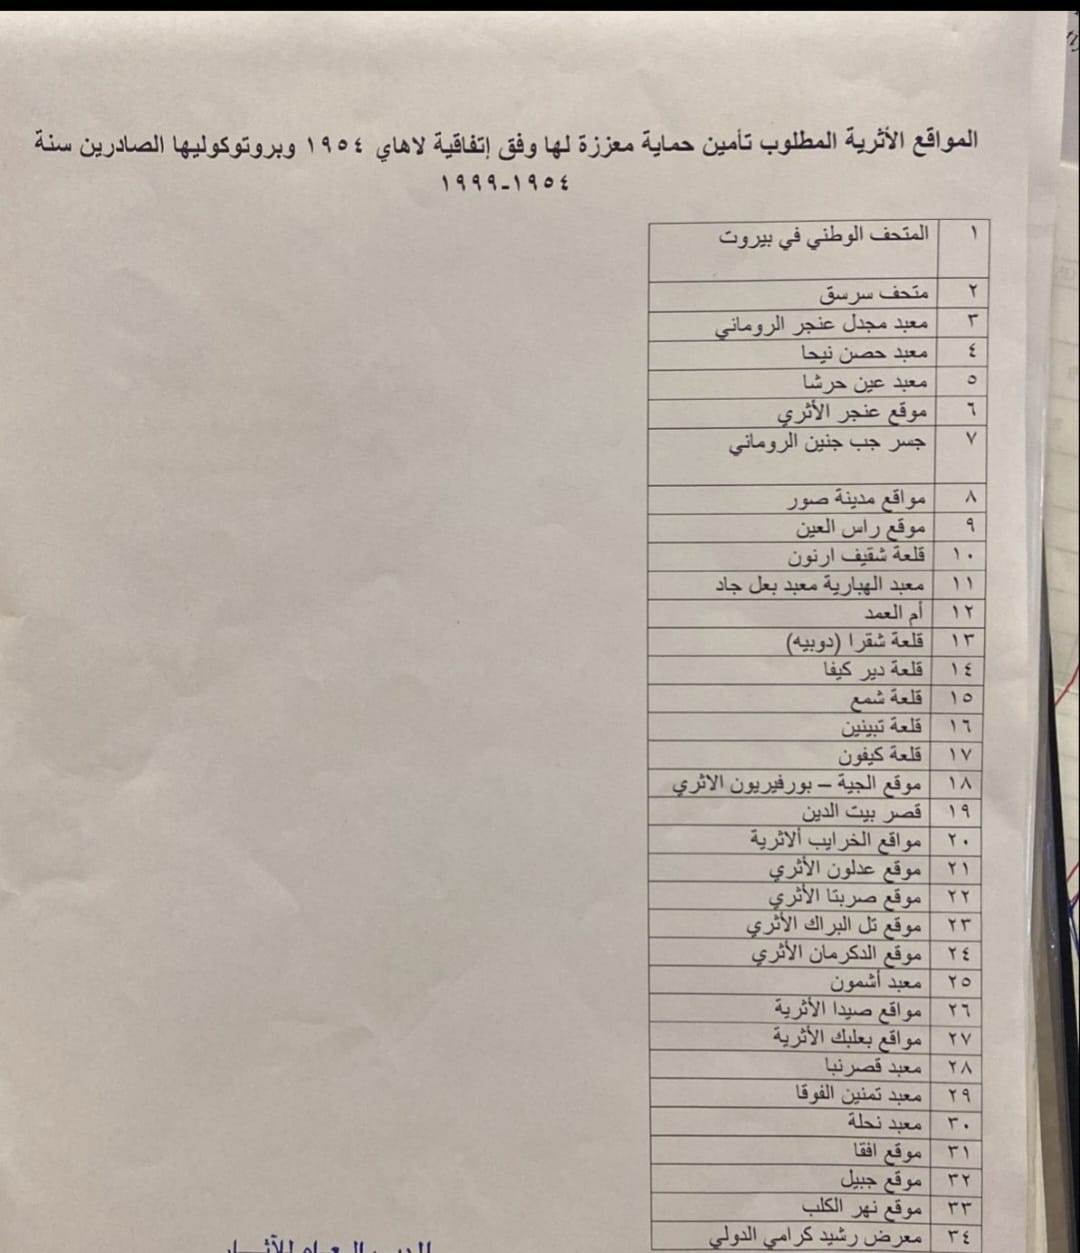 المواقع الأثرية المطلوب تأمين حماية معززة لها وفق إتفاقية لاهاي ١٩٥٤ وبروتوكوليها الصادرين سنة
١٩٥٤-١٩٩٩
١ المتحف الوطني في بيروت
٢ متحف سرسق
٣ معبد مجدل عنجر الروماني
٤ معبد حصن نيحا
٥ معبد عين حرشا
٦ موقع عنجر الأثري
٧ جسر جب جنين الروماني
٨ مواقع مدينة صور
٩ موقع راس العين
١٠ قلعة شقيف ارنون
١١ معبد الهبارية معبد بعل جاد
١٢ أم العمد
١٣ قلعة شقرا (دوبيه)
١٤ قلعة دير كيفا
١٥ قلعة شمع
١٦ قلعة تبينين
١٧ قلعة كيفون
١٨ موقع الجية – بورفيريون الاثري
١٩ قصر بيت الدين
٢٠ مواقع الخرايب ألاثرية
٢١ موقع عدلون الأثري
٢٢ موقع صربتا الأثري
٢٣ موقع تل البراك الأثري
٢٤ موقع الدكرمان الأثري
٢٥ معبد أشمون
٢٦ مواقع صيدا الأثرية
٢٧ مواقع بعلبك الأثرية
٢٨ معبد قصرنبا
٢٩ معبد تمنين الفوقا
٣٠ معبد نحلة
٣١ موقع افقا
٣٢ موقع جبيل
٣٣ موقع نهر الكلب
٣٤ معرض رشيد كرامي الدولي